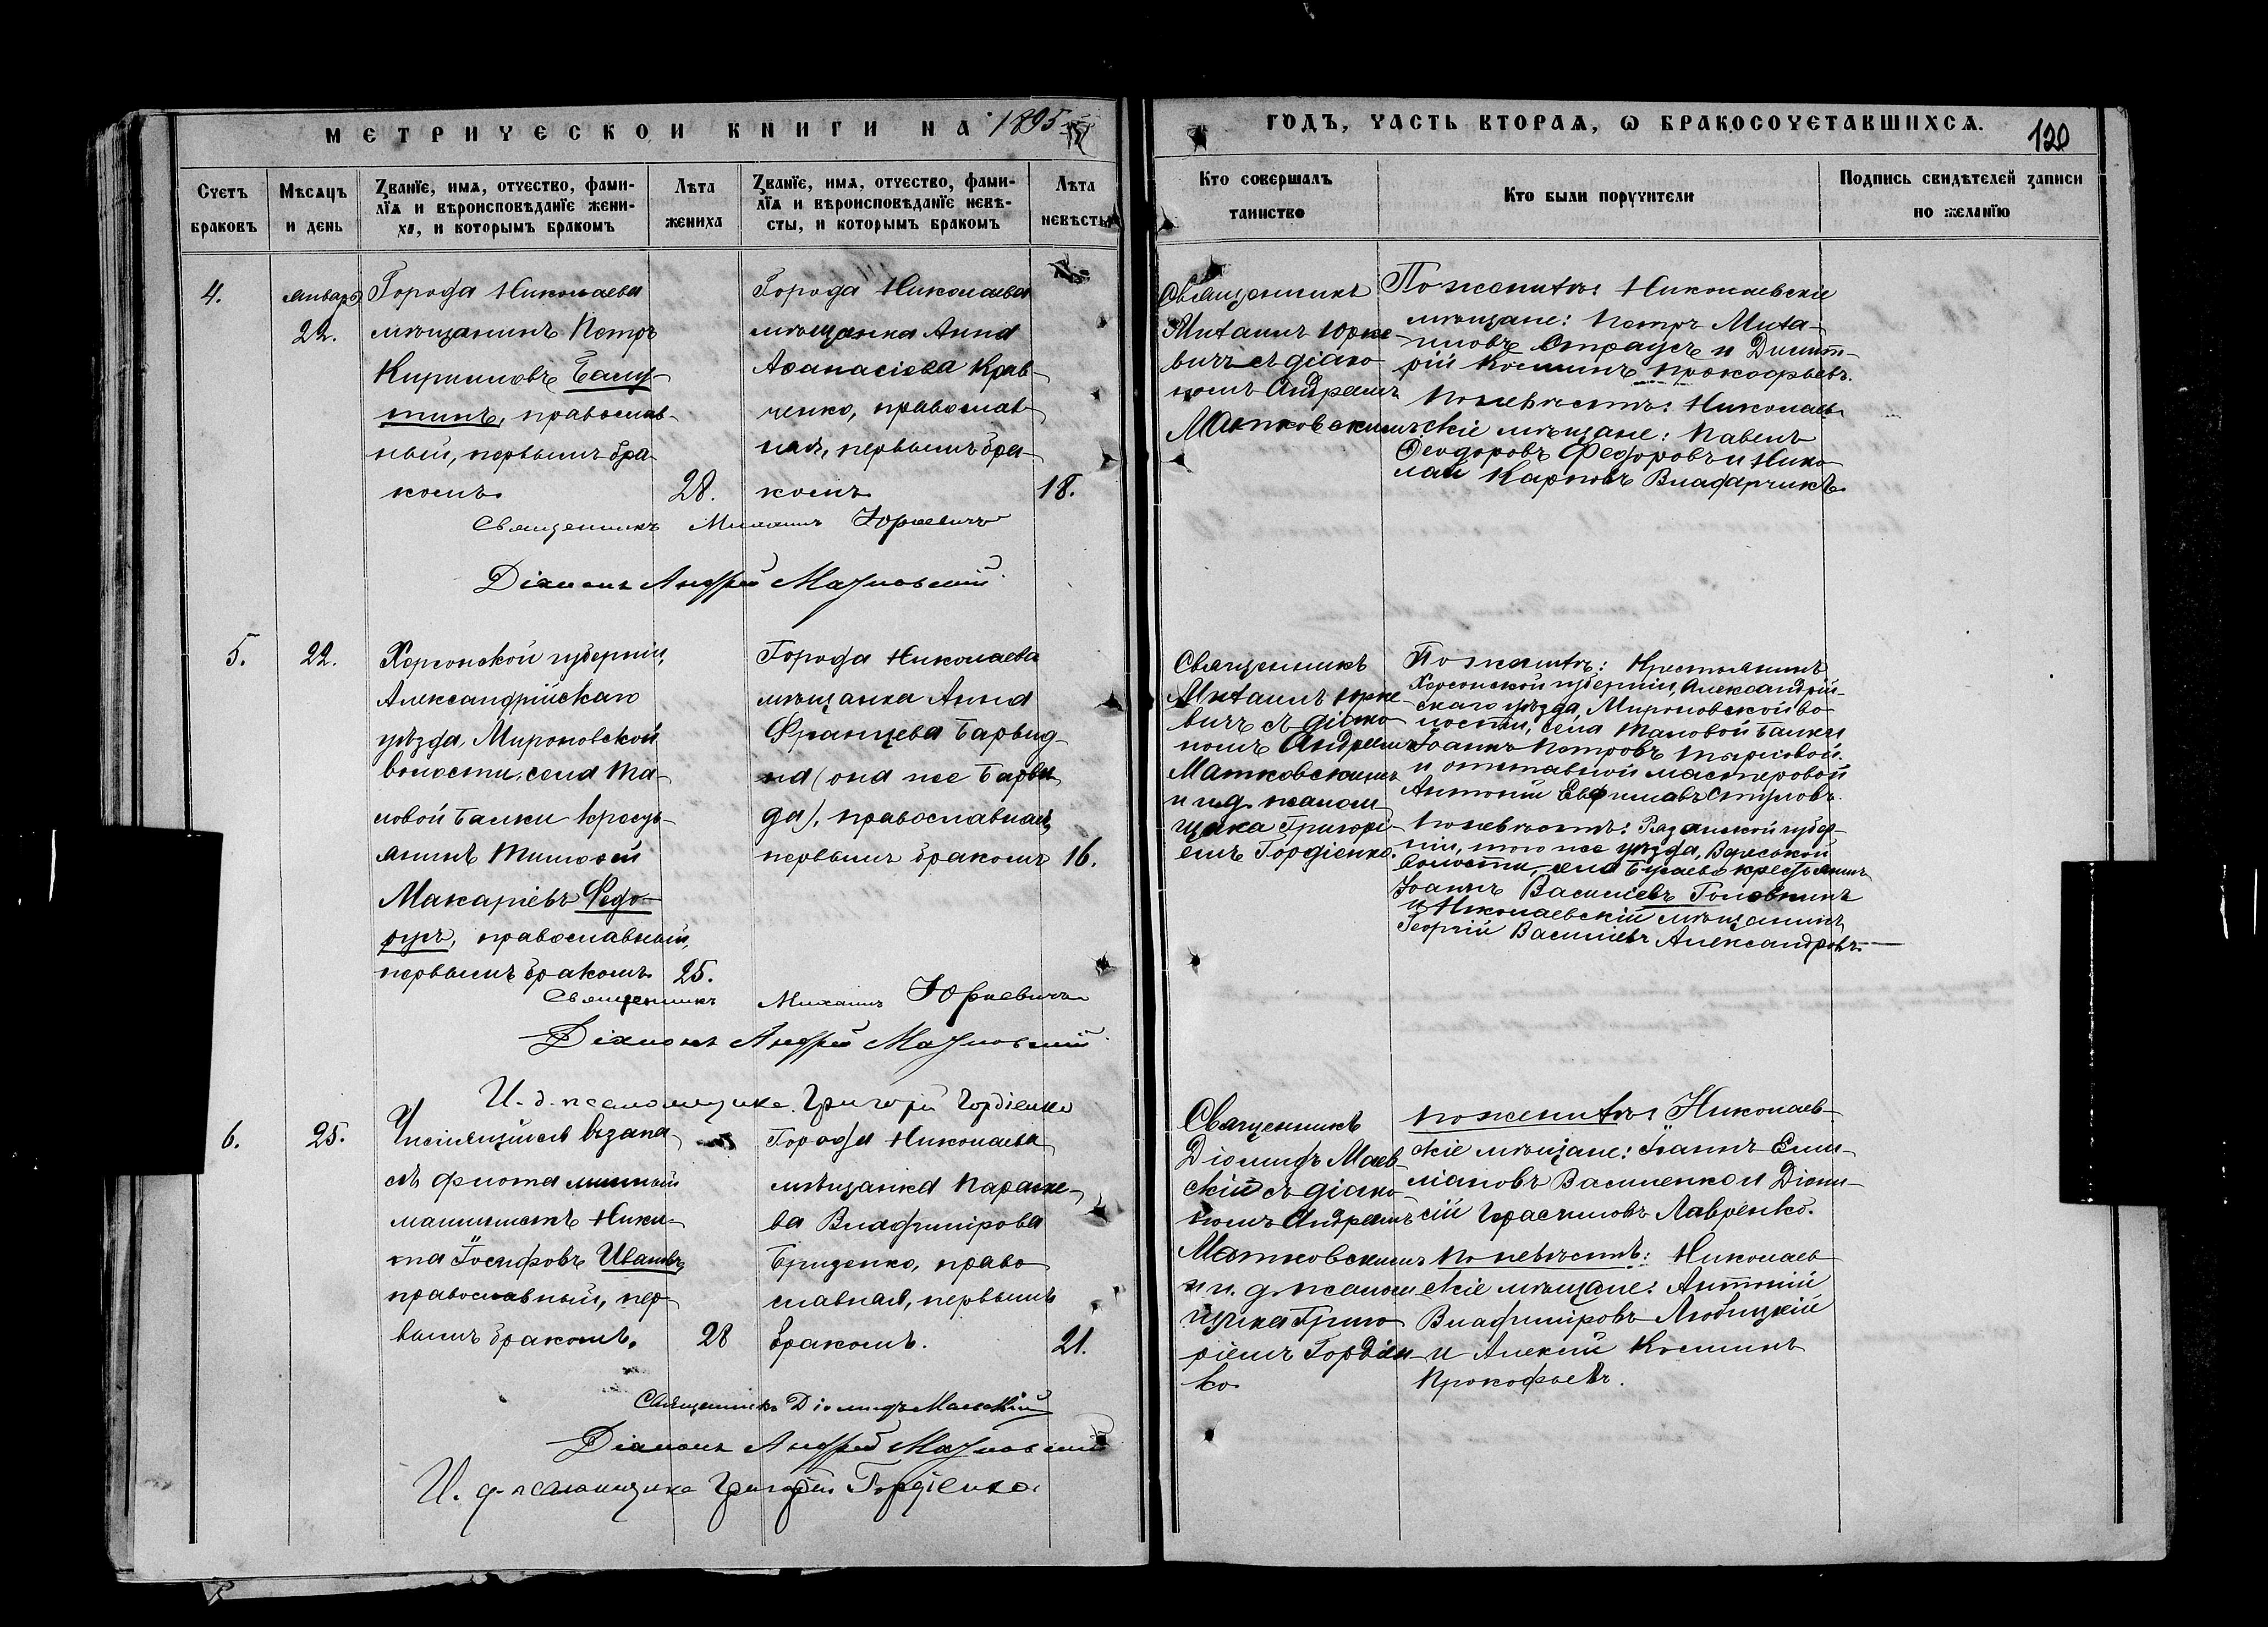 МЕТРИЧЕСКОЙ КНИГИ НА 1895
ГОДЪ, ЧАСТЬ ВТОРАЯ, Ѡ БРАКОСОЧЕТАВШИХСЯ.
120
Счетъ браковъ
Мѣсяцъ и день
Званїе, имя, отчество, фами-
лїя и вѣроисповѣданїе жени-
ха, и которымъ бракомъ
Лѣта жениха
Званїе, имя, отчество, фами-
лїя и вѣроисповѣданїе невѣ-
сты, и которымъ бракомъ
Лѣта невѣсты
Кто совершалъ таинство
Кто были поручители
Подпись свидѣтелей записи
по желанїю
4.
Январь
22.
Города Николаева
мѣщанинъ Петръ
Кирилловъ
православ-
ный, первымъ бра-
комъ.
28.
Города Николаева
мѣщанка Анна
Аѳанасіева Крав-
ченко, православ-
ная, первымъ бра-
комъ
18.
Священникъ
Михаилъ Юрке-
вичъ съ діако-
номъ Андреемъ
Матковскимъ
По женихѣ: Николаевскіе
мѣщане: Петръ Миха-
иловъ Страусъ и Димит-
рій Косминъ Прокофьевъ.
По невѣстѣ: Николаев-
скіе мѣщане: Павелъ
Ѳеодоровъ Федоровъ и Нико-
лай Карповъ
Священникъ Михаилъ Юркевичъ
Діаконъ Андрей Матковскій
5.
22.
Херсонской губерніи,
Александрійскаго
уѣзда, Мироновской
волости, села Та-
ловой Балки кресть-
янинъ Тимоѳей
Макаріевъ Федо-
руъ, православный,
первымъ бракомъ
25.
Города Николаева
мѣщанка Анна
Францева Барвид-
на (она же Барви-
да), православная,
первымъ бракомъ
16.
Священникъ
Михаилъ Юрке-
вичъ съ діако-
номъ Андреемъ
Матковскимъ
и и. д. псалом-
щика Григорі-
емъ Гордіенко.
По женихѣ: Крестьянинъ
Херсонской губерніи, Александрій-
скаго уѣзда Мироновской во-
лости, села Таловой Балки
Іоаннъ Петровъ
и отставной мастеровой
Антоній Евфимовъ
По невѣстѣ: Рязанской губер-
ніи, того же уѣзда,
волости, села Бусаево крестьянинъ
Іоаннъ Василіевъ Головкинъ
и Николаевскій мѣщанинъ
Георгій Василіевъ Александровъ.
Священникъ Михаилъ Юркевичъ
Діаконъ Андрей Матковскій
И. д. псаломщика Григорій Гордіенко
6.
25.
Числящійся въ запа-
сѣ флота минный
машинистъ Ники-
та Іосифовъ Ивановъ,
православный, пер-
вымъ бракомъ.
28
Города Николаева
мѣщанка Параске-
ва Владимірова
Гриценко, право-
славная, первымъ
бракомъ.
21.
Священникъ
Діомидъ Маев-
скій съ діако-
номъ Андреемъ
Матковскимъ
и и. д. псалом-
щика Григо-
ріемъ Гордіен-
ко.
По женихѣ: Николаев-
скіе мѣщане: Іоаннъ Еми-
ліановъ Василенко и Діони-
сій Герасимовъ Лавренко.
По невѣстѣ: Николаев-
скіе мѣщане: Антоній
Владиміровъ Любицкій
и Алексій Косминъ
Прокофьевъ.
Священникъ Діомидъ Маевскій
Діаконъ Андрей Матковскій
И. д. псаломщика Григорій Гордіенко